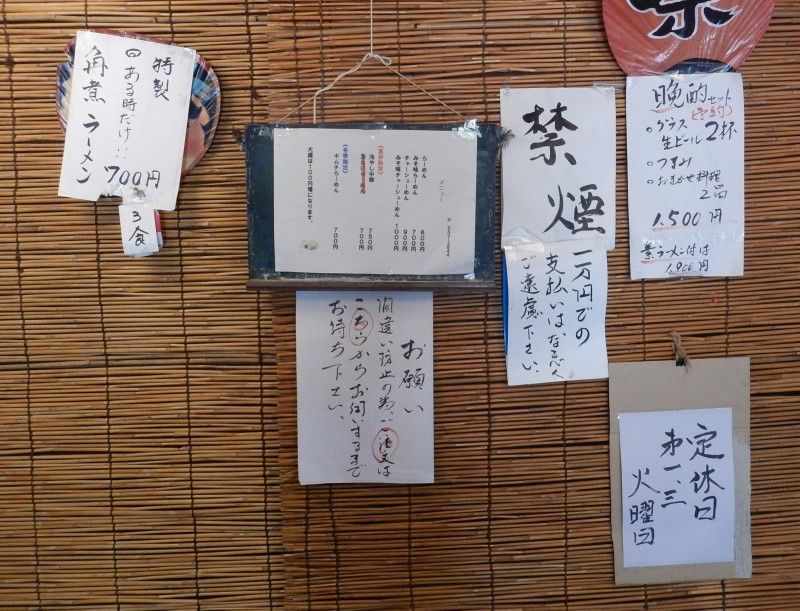 特製
日ある時だけ!!
角煮ラーメン
700円
3食
メニュー
らーめん 600円
みそ味らーめん 700円
チャーシューめん 900円
みそ味チャーシューめん 1000円
《夏季限定》
冷やし中華 750円
700円
《冬季限定》
キムチらーめん 700円
大盛は100円増になります。
お願い
間違い防止の為、ご注文は
こちらからお伺いするまで
お待ち下さい。
禁煙
一万円での
支払いはなるべく
ご遠慮下さい。
晩酌セット
(予約)
○グラス生ビール2杯
○つまみ
○おまかせ料理2品
1,500円
素ラーメン付は
1,900円
定休日
第一、三
火曜日